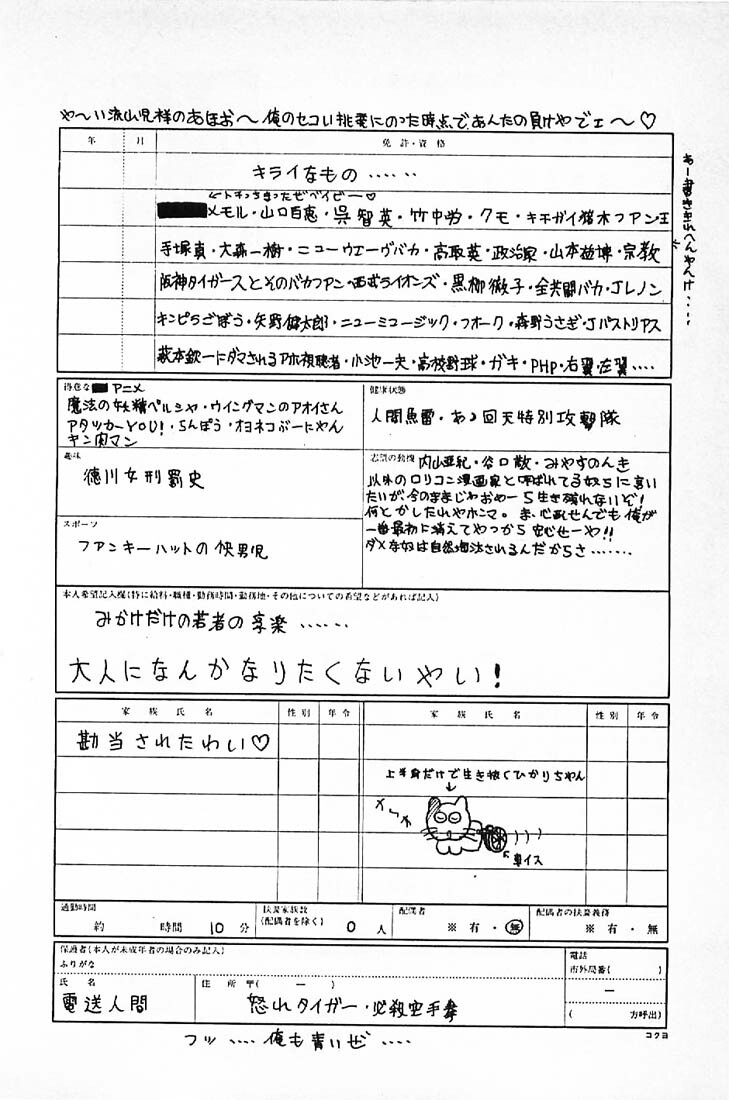 や〜い流山児様のあほお〜俺のセコい挑発にのった時点で、あんたの負けやでェ〜♡
年 月 免許・資格
キライなもの‥‥‥
メモル・山口百恵・呉智英・竹中労・クモ・キチガイ猪木ファン王
手塚真・大森一樹・ニューウェーヴバカ・高取英・政治家・山本益博・宗教
阪神タイガースとそのバカファン・西武ライオンズ・黒柳徹子・全共闘バカ・Jレノン
キンピラごぼう・矢野健太郎・ニューミュージック・フォーク・森野うさぎ・Jパストリアス
萩本欽一にダマされるアホ視聴者・小池一夫・高校野球・ガキ・PHP・右翼・左翼‥‥
あー書ききれへんやんけ‥‥
得意な アニメ
魔法の妖精ペルシャ・ウイングマンのアオイさん
アタッカーYOU!・らんぽう・オヨネコぶーにゃん
キン肉マン
健康状態
人間魚雷・あゝ回天特別攻撃隊
趣味
徳川女刑罰史
志望の動機 内山亜紀・谷口敬・みやすのんき
以外のロリコン漫画家と呼ばれてる奴らに言い
たいが今のままじゃおめーら生き残れないぞ!
何とかしたれやホンマ。ま、心配せんでも俺が
一番最初に消えてやっから安心せーや!!
ダメな奴は自然淘汰されるんだからさ‥‥‥
スポーツ
ファンキーハットの快男児
本人希望記入欄(特に給料・職種・勤務時間・勤務地・その他についての希望などがあれば記入)
みかけだけの若者の享楽‥‥‥
大人になんかなりたくないやい!
家族氏名 性別 年令 家族氏名 性別 年令
勘当されたわい♡
上半身だけで生き抜くひかりちゃん
車イス
通勤時間
約 時間 10 分
扶養家族数
(配偶者を除く) 0 人
配偶者
※有・無
配偶者の扶養義務
※有・無
保護者(本人が未成年者の場合のみ記入)
ふりがな
氏名
電送人間
住所 〒( ー )
怒れタイガー・必殺空手拳
電話
市外局番( )
ー
( 方呼出)
コクヨ
フッ‥‥俺も青いぜ‥‥